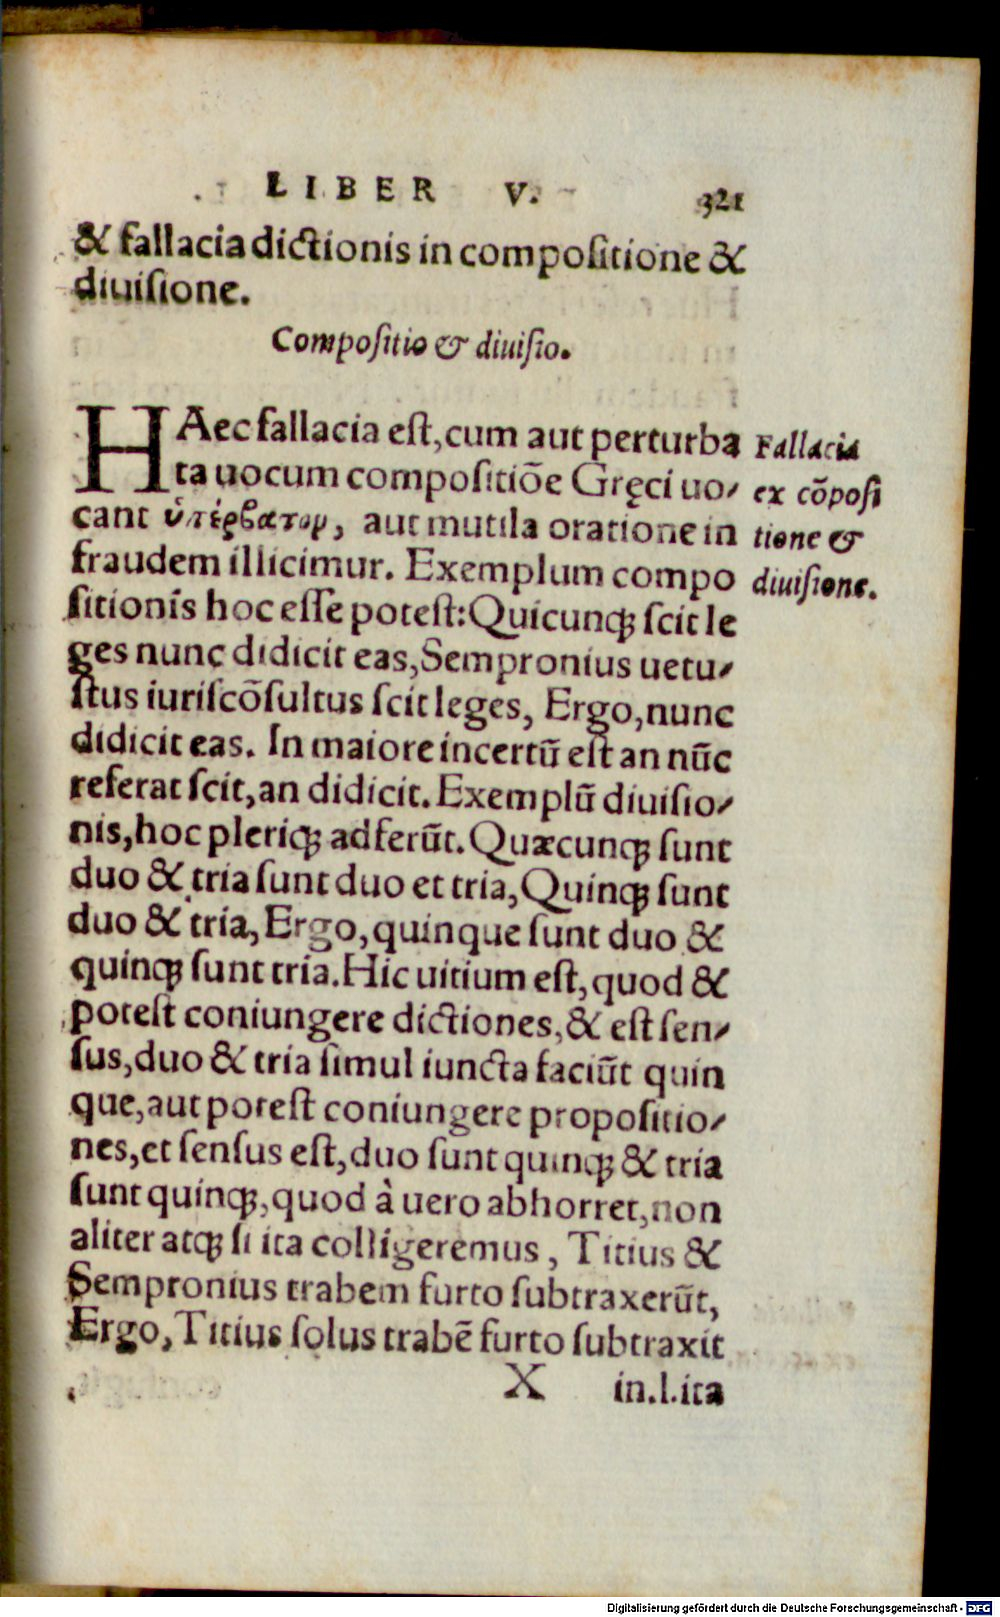 LIBER V. 321
& fallacia dictionis in compositione &
diuisione.
Compositio & diuisio.
HAec fallacia est, cum aut perturba
ta uocum compositiõe Gręci uo-
cant ὑπέρβατομ, aut mutila oratione in
fraudem illicimur. Exemplum compo
sitionis hoc esse potest: Quicunqꝫ scit le
ges nunc didicit eas, Sempronius uetu-
stus iuriscõsultus scit leges, Ergo, nunc
didicit eas. In maiore incertũ est an nũc
referat scit, an didicit. Exemplũ diuisio-
nis, hoc pleriqꝫ adferũt. Quæcunqꝫ sunt
duo & tria sunt duo et tria, Quinqꝫ sunt
duo & tria, Ergo, quinque sunt duo &
quinqꝫ sunt tria. Hic uitium est, quod &
potest coniungere dictiones, & est sen-
sus, duo & tria simul iuncta faciũt quin
que, aut potest coniungere propositio-
nes, et sensus est, duo sunt quinqꝫ & tria
sunt quinqꝫ, quod à uero abhorret, non
aliter atqꝫ si ita colligeremus, Titius &
Sempronius trabem furto subtraxerũt,
Ergo, Titius solus trabẽ furto subtraxit
X in.l.ita
Fallacia
ex cõposi
tione &
diuisione.
Digitalisierung gefördert durch die Deutsche Forschungsgemeinschaft - DFG